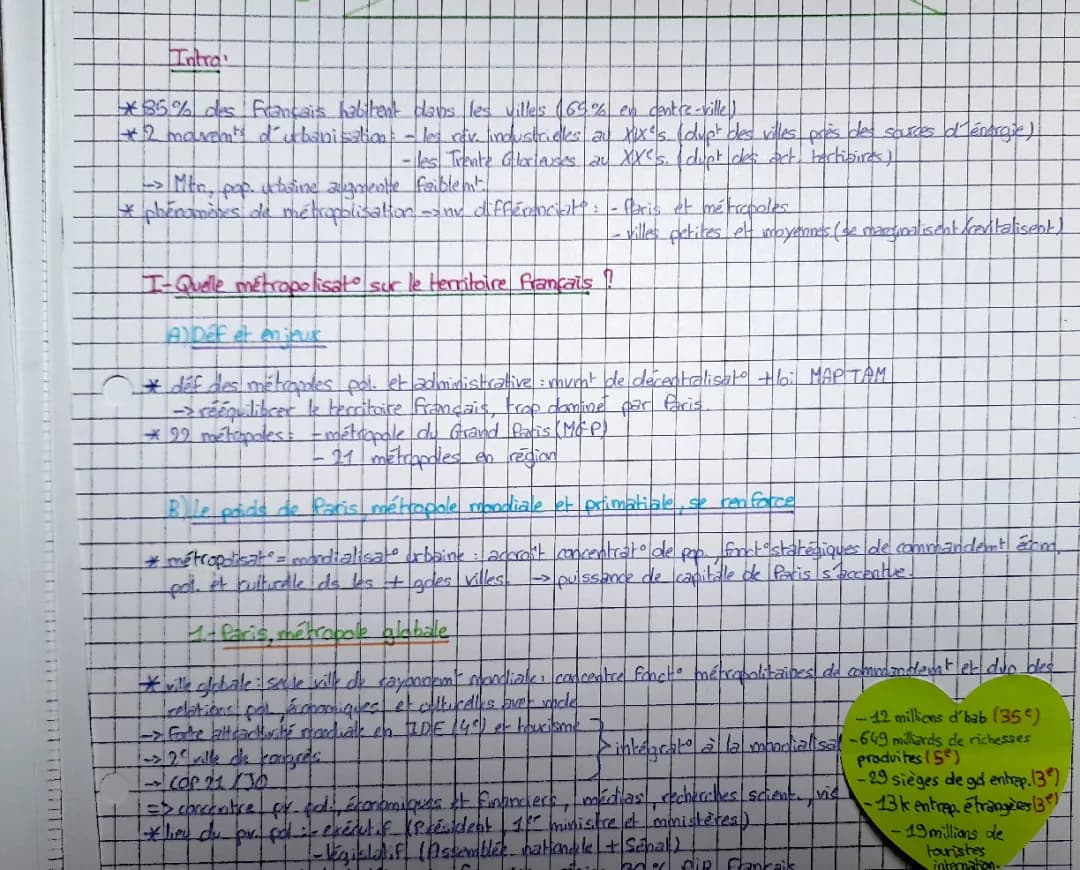 Intro:
* 85% des Français habitent dans les villes (65% en centre-ville)
* 2 mouvemts d'urbanisation: - les rév. industrielles au XIXe s. (dvpt des villes près des sources d'énergie)
- les Trente Glorieuses au XXe s. (dvpt des act. tertiaires)
-> Mtn, pop. urbaine augmente faiblemt.
* phénomènes de métropolisation -> nv différenciat° : - Paris et métropoles
- villes petites et moyennes (se marginalisent/revitalisent)
I- Quelle métropolisat° sur le territoire français ?
A) Déf et enjeux
* déf des métropoles pol. et administrative : mvmt de décentralisat° + loi MAPTAM
-> rééquilibrer le territoire français, trop dominé par Paris.
* 22 métropoles: - métropole du Grand Paris (MGP)
- 21 métropoles en région
B) Le poids de Paris, métropole mondiale et primatiale, se renforce
* métropolisat° = mondialisat° urbaine : accroît concentrat° de pop., fonct° stratégiques de commandemt écm,
pol. et culturelle ds les + gdes villes. -> puissance de capitale de Paris s'accentue.
1- Paris, métropole globale
* ville globale: seule ville de rayonnemt mondiale: concentre fonct° métropolitaines de commandemt et duo des
relations pol, économiques et culturelles avec monde
-> Forte attractivité mondiale en IDE (4e) et tourisme
-> 2e ville de congrès
-> COP 21 / JO
intégrat° à la mondialisat
=> concentre pv. pol, économiques et financiers, médias, recherches scient.,
* lieu du pv. pol : - exécutif (Président, 1er ministre et ministères)
- législatif (Assemblée nationale + Sénat)
Français
- 12 millions d'hab (35e)
- 649 milliards de richesses
produites (5e)
- 29 sièges de gd entrep. (3e)
- 13k entrep. étrangères (3e)
- 19 millions de
touristes
internation.